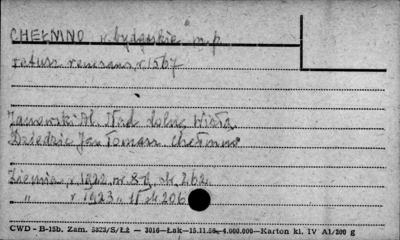 CHEŁMNO w. bydgoskie m.p.
ratusz renesans. r. 1567
Janowski Al. Nad dolną Wisłą
Dziedzic Jan Toman Chełmno
Ziemia, r. 1922 nr 8-9, str. 262
" r. 1923 " 11 str. 206
CWD - B-15b. Zam. 5323/S/Łż — 3016—Łak—15.11.56—4.000.000—Karton kl. IV A1/200 g